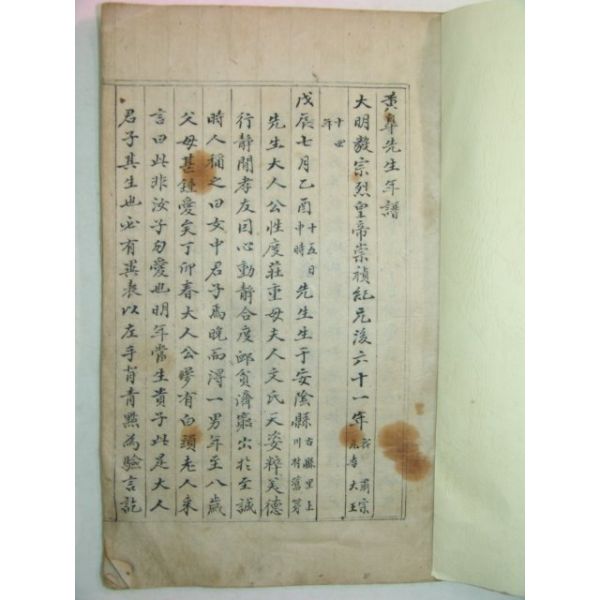 黃皐先生年譜
大明毅宗烈皇帝崇禎紀元後六十一年我肅宗元孝大王
十四年
戊辰七月乙酉十五日申時先生生于安陰縣古縣里上川村舊第
先生大人公性度莊重母夫人文氏天姿粹美德
行靜閒孝友因心動靜合度卹貧濟窮出於至誠
時人稱之曰女中君子焉晩而得一男年至八歲
父母甚鍾愛矣丁卯春大人公夢有白頭老人來
言曰此非汝子勿愛也明年當生貴子此是大人
君子其生也必有異表以左手背靑點為驗言訖